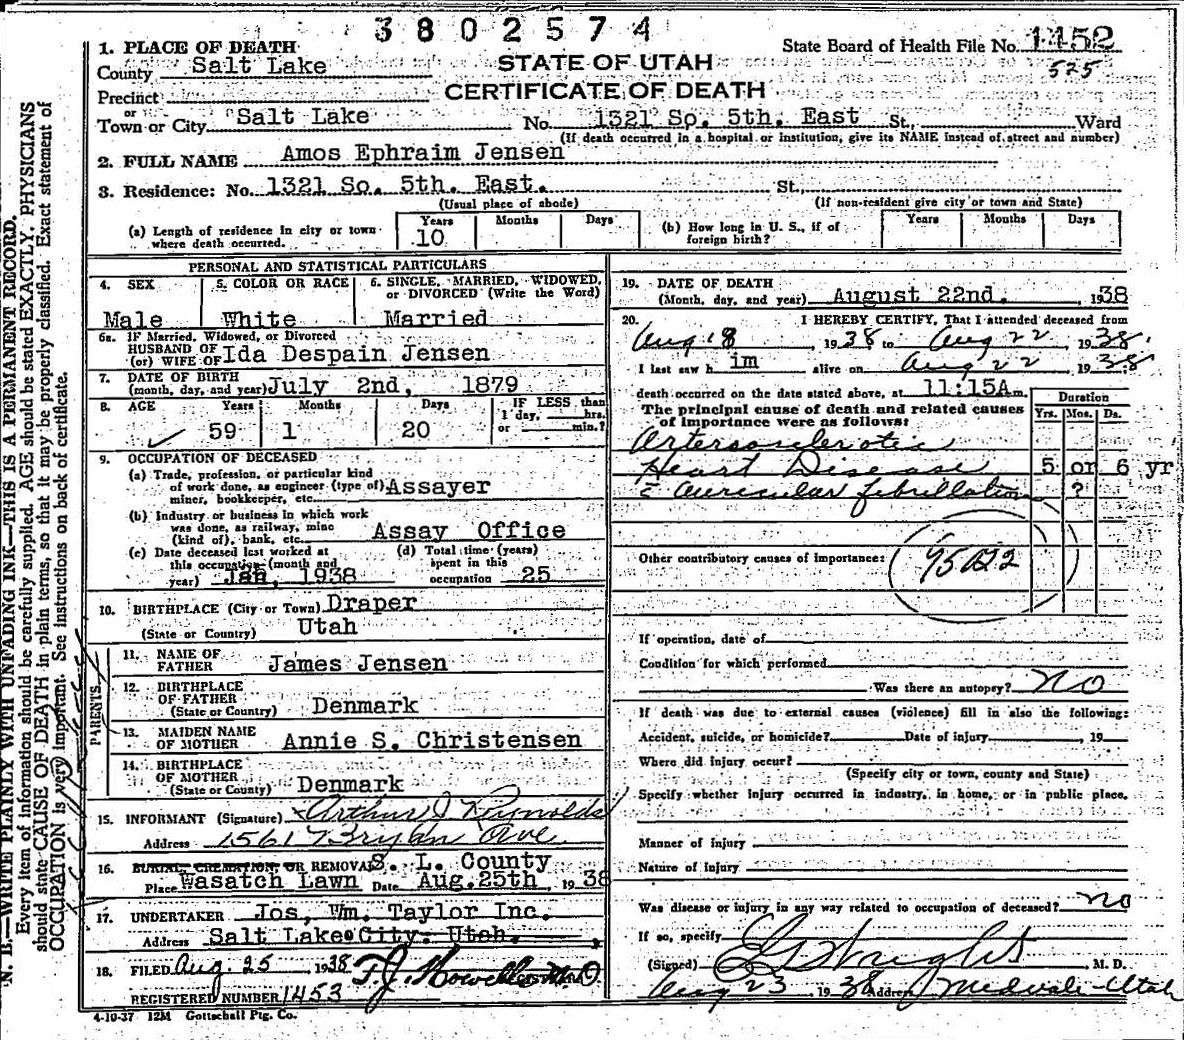 3802574
1. PLACE OF DEATH
State Board of Health File No. 1452
County Salt Lake
STATE OF UTAH
525
Precinct
CERTIFICATE OF DEATH
or
Town or City Salt Lake No. 1321 So. 5th. East St., Ward
(If death occurred in a hospital or institution, give its NAME instead of street and number)
2. FULL NAME Amos Ephraim Jensen
3. Residence: No. 1321 So. 5th. East. St.,
(Usual place of abode) (If non-resident give city or town and State)
(a) Length of residence in city or town where death occurred. Years 10 Months Days
(b) How long in U. S., if of foreign birth? Years Months Days
PERSONAL AND STATISTICAL PARTICULARS
4. SEX Male
5. COLOR OR RACE White
6. SINGLE, MARRIED, WIDOWED, or DIVORCED (Write the Word) Married
6a. IF Married, Widowed, or Divorced
HUSBAND OF
(or) WIFE OF Ida Despain Jensen
7. DATE OF BIRTH
(month, day, and year) July 2nd, 1879
8. AGE Years 59 Months 1 Days 20
IF LESS than
1 day, hrs.
or min.?
9. OCCUPATION OF DECEASED
(a) Trade, profession, or particular kind
of work done, as engineer (type of)
miner, bookkeeper, etc. Assayer
(b) Industry or business in which work
was done, as railway, mine
(kind of), bank, etc. Assay Office
(c) Date deceased last worked at
this occupation (month and
year) Jan, 1938
(d) Total time (years)
spent in this
occupation 25
10. BIRTHPLACE (City or Town) Draper
(State or Country) Utah
PARENTS
11. NAME OF
FATHER James Jensen
12. BIRTHPLACE
OF FATHER
(State or Country) Denmark
13. MAIDEN NAME
OF MOTHER Annie S. Christensen
14. BIRTHPLACE
OF MOTHER
(State or Country) Denmark
15. INFORMANT (Signature) Arthur J Reynolds
Address 1561 Bryan Ave
16. BURIAL, CREMATION, OR REMOVAL S. L. County
Place Wasatch Lawn Date Aug. 25th, 1938
17. UNDERTAKER Jos, Wm. Taylor Inc.
Address Salt Lake City. Utah.
18. FILED Aug. 25 1938 F. J. M.D
REGISTERED NUMBER 1453
4-10-37 12M Gottschall Ptg. Co.
19. DATE OF DEATH
(Month, day, and year) August 22nd. , 1938
20. I HEREBY CERTIFY, That I attended deceased from
Aug 18, 1938 to Aug 22, 1938.
I last saw h im alive on Aug 22 1938
death occurred on the date stated above, at 11:15A m.
The principal cause of death and related causes
of importance were as follows:
Duration
Yrs. Mos. Ds.
Arteriosclerotic
Heart Disease 5 or 6 yr
c̄ auricular fibrillation ?
Other contributory causes of importance:
If operation, date of
Condition for which performed
Was there an autopsy? no
If death was due to external causes (violence) fill in also the following:
Accident, suicide, or homicide? Date of injury , 19
Where did injury occur?
(Specify city or town, county and State)
Specify whether injury occurred in industry, in home, or in public place.
Manner of injury
Nature of injury
Was disease or injury in any way related to occupation of deceased? no
If so, specify
(Signed) Wright , M. D.
Aug 23 1938 Address Midvale-Utah
N. B.—WRITE PLAINLY WITH UNFADING INK—THIS IS A PERMANENT RECORD.
Every item of information should be carefully supplied. AGE should be stated EXACTLY. PHYSICIANS
should state CAUSE OF DEATH in plain terms, so that it may be properly classified. Exact statement of
OCCUPATION is very important. See instructions on back of certificate.